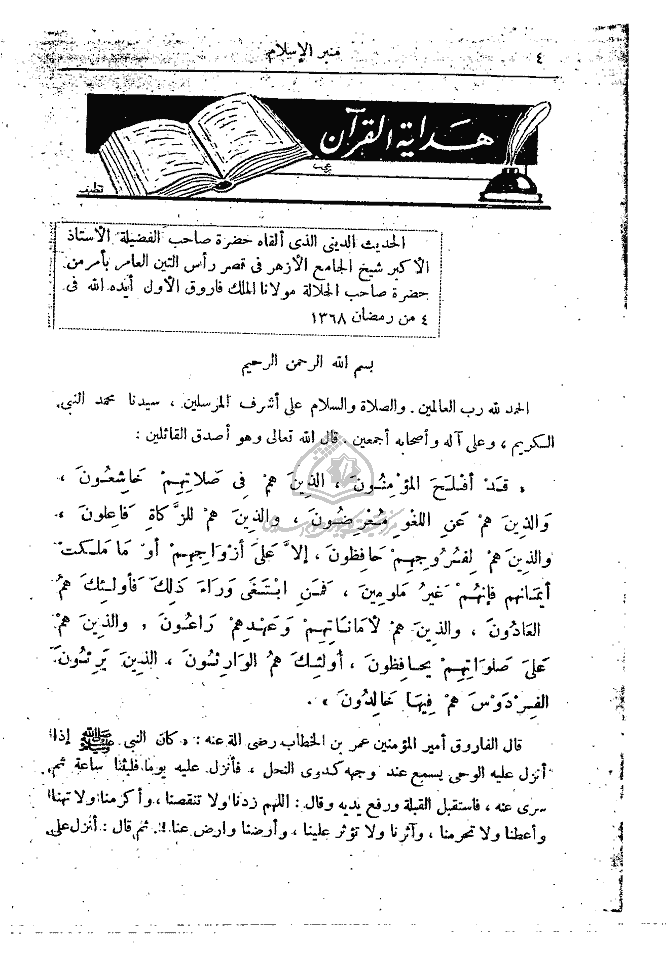 ٤
منبر الإسلام
هداية القرآن
الحديث الدينى الذى ألقاه حضرة صاحب الفضيلة الأستاذ
الأكبر شيخ الجامع الأزهر فى قصر رأس التين العامر بأمر من
حضرة صاحب الجلالة مولانا الملك فاروق الأول أيده الله فى
٤ من رمضان ١٣٦٨
بسم الله الرحمن الرحيم
الحمد لله رب العالمين . والصلاة والسلام على أشرف المرسلين ، سيدنا محمد النبى
الكريم ، وعلى آله وأصحابه أجمعين . قال الله تعالى وهو أصدق القائلين :
« قَدْ أفْلَحَ المؤْمنُونَ ، الذينَ همْ فى صَلاتِهِمْ خَاشعُونَ ،
وَالذينَ همْ عَنِ اللغوِ مُعْرضُونَ ، وَالذينَ همْ للزَّكاةِ فَاعِلونَ ،
والذينَ همْ لِفُرُوجِهِمْ حَافظونَ ، إلاَّ عَلَى أزْوَاجِهِمْ أوْ مَا مَلَكتْ
أيمَانهم فَإنهُمْ غَيرُ مَلومِينَ ، فَمَنِ ابْتَغَى وَرَاءَ ذلِكَ فَأولئِكَ همُ
العَادُونَ ، والذينَ همْ لأمَانَاتِهِمْ وَعَهدِهمْ رَاعُونَ ، والذينَ همْ
عَلَى صَلَوَاتِهِمْ يحَافِظونَ ، أولئِكَ همُ الوَارِثُونَ ، الذينَ يَرِثُونَ
الفِرْدَوْسَ همْ فِيهَا خَالدُونَ » .
قال الفاروق أمير المؤمنين عمر بن الخطاب رضى الله عنه : « كان النبى ﷺ إذا
أنزل عليه الوحى يسمع عند وجهه كدوى النحل ، فأنزل عليه يوما فلبثنا ساعة ثم
سرى عنه ، فاستقبل القبلة ورفع يديه وقال : اللهم زدنا ولا تنقصنا ، وأكرمنا ولا تهنا
وأعطنا ولا تحرمنا ، وآثرنا ولا تؤثر علينا ، وأرضنا وارض عنا !. ثم قال : أنزل على